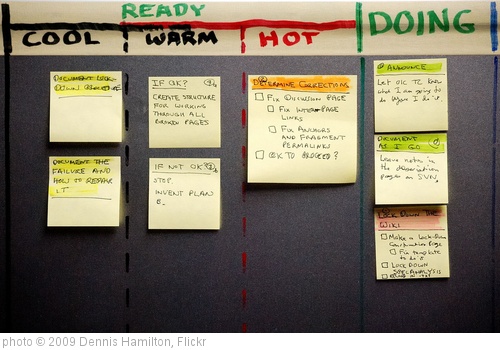 READY
COOL WARM HOT DOING
DOCUMENT LOCK-
DOWN PROCEDURE
DOCUMENT THE
FAILURE AND
HOW TO REPAIR
IT
IF OK?
CREATE STRUCTURE
FOR WORKING
THROUGH ALL
BROKEN PAGES
IF NOT OK?
STOP.
INVENT PLAN
B.
DETERMINE CORRECTION
FIX DISCUSSION PAGE
FIX INTER-PAGE
LINKS
FIX ANCHORS
AND FRAGMENT
PERMALINKS
OK TO PROCEED?
ANNOUNCE
Let OIC TC know
what I am going to
do before I do it.
DOCUMENT
AS I GO
Leave notes in
the
pages on SVN
LOCK DOWN THE
WIKI
Make a Lock-Down
Page
Fix template
to do it
LOCK DOWN
photo © 2009 Dennis Hamilton, Flickr